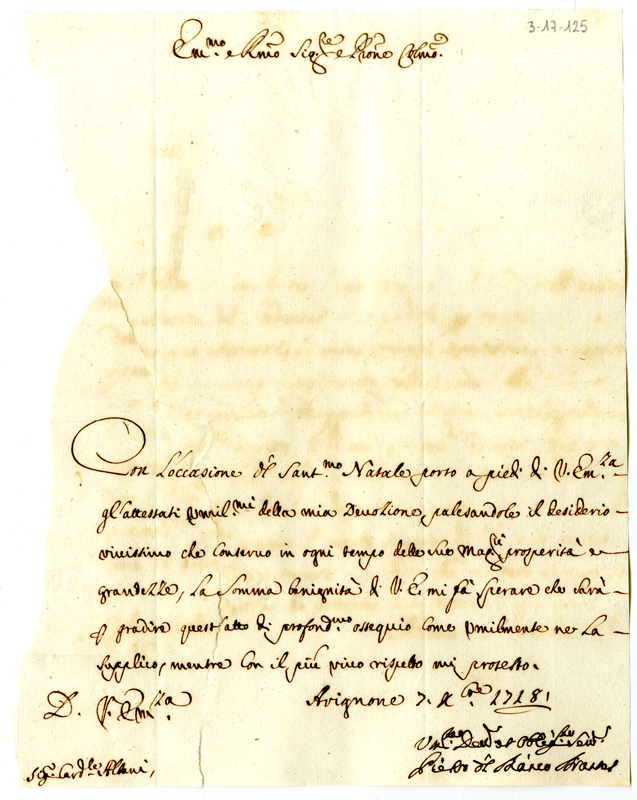 3-17-125
Em.mo e Rmo Sig.re e Pnōe Colmo.
Con L'occasione dl' Sant.mo Natale porto a piedi di V. Em.za
gl'attestati Vmil.mi della mia Devozione, palesandole il desiderio
vivissimo che conservo in ogni tempo delle sue Mag.ri prosperità e
grandezze, La Somma benignità di V. E. mi fà sperare che sarà
p gradire quest'atto di profond.mo ossequio come Vmilmente ne La
supplico, mentre con il più vivo rispetto mi protesto.
D. V. Em.za
Avignone 7. Xbre 1718
Vm.mo Dev.mo et Oblig.mo Serv.
Sig. Card.le Albani,
Pietro